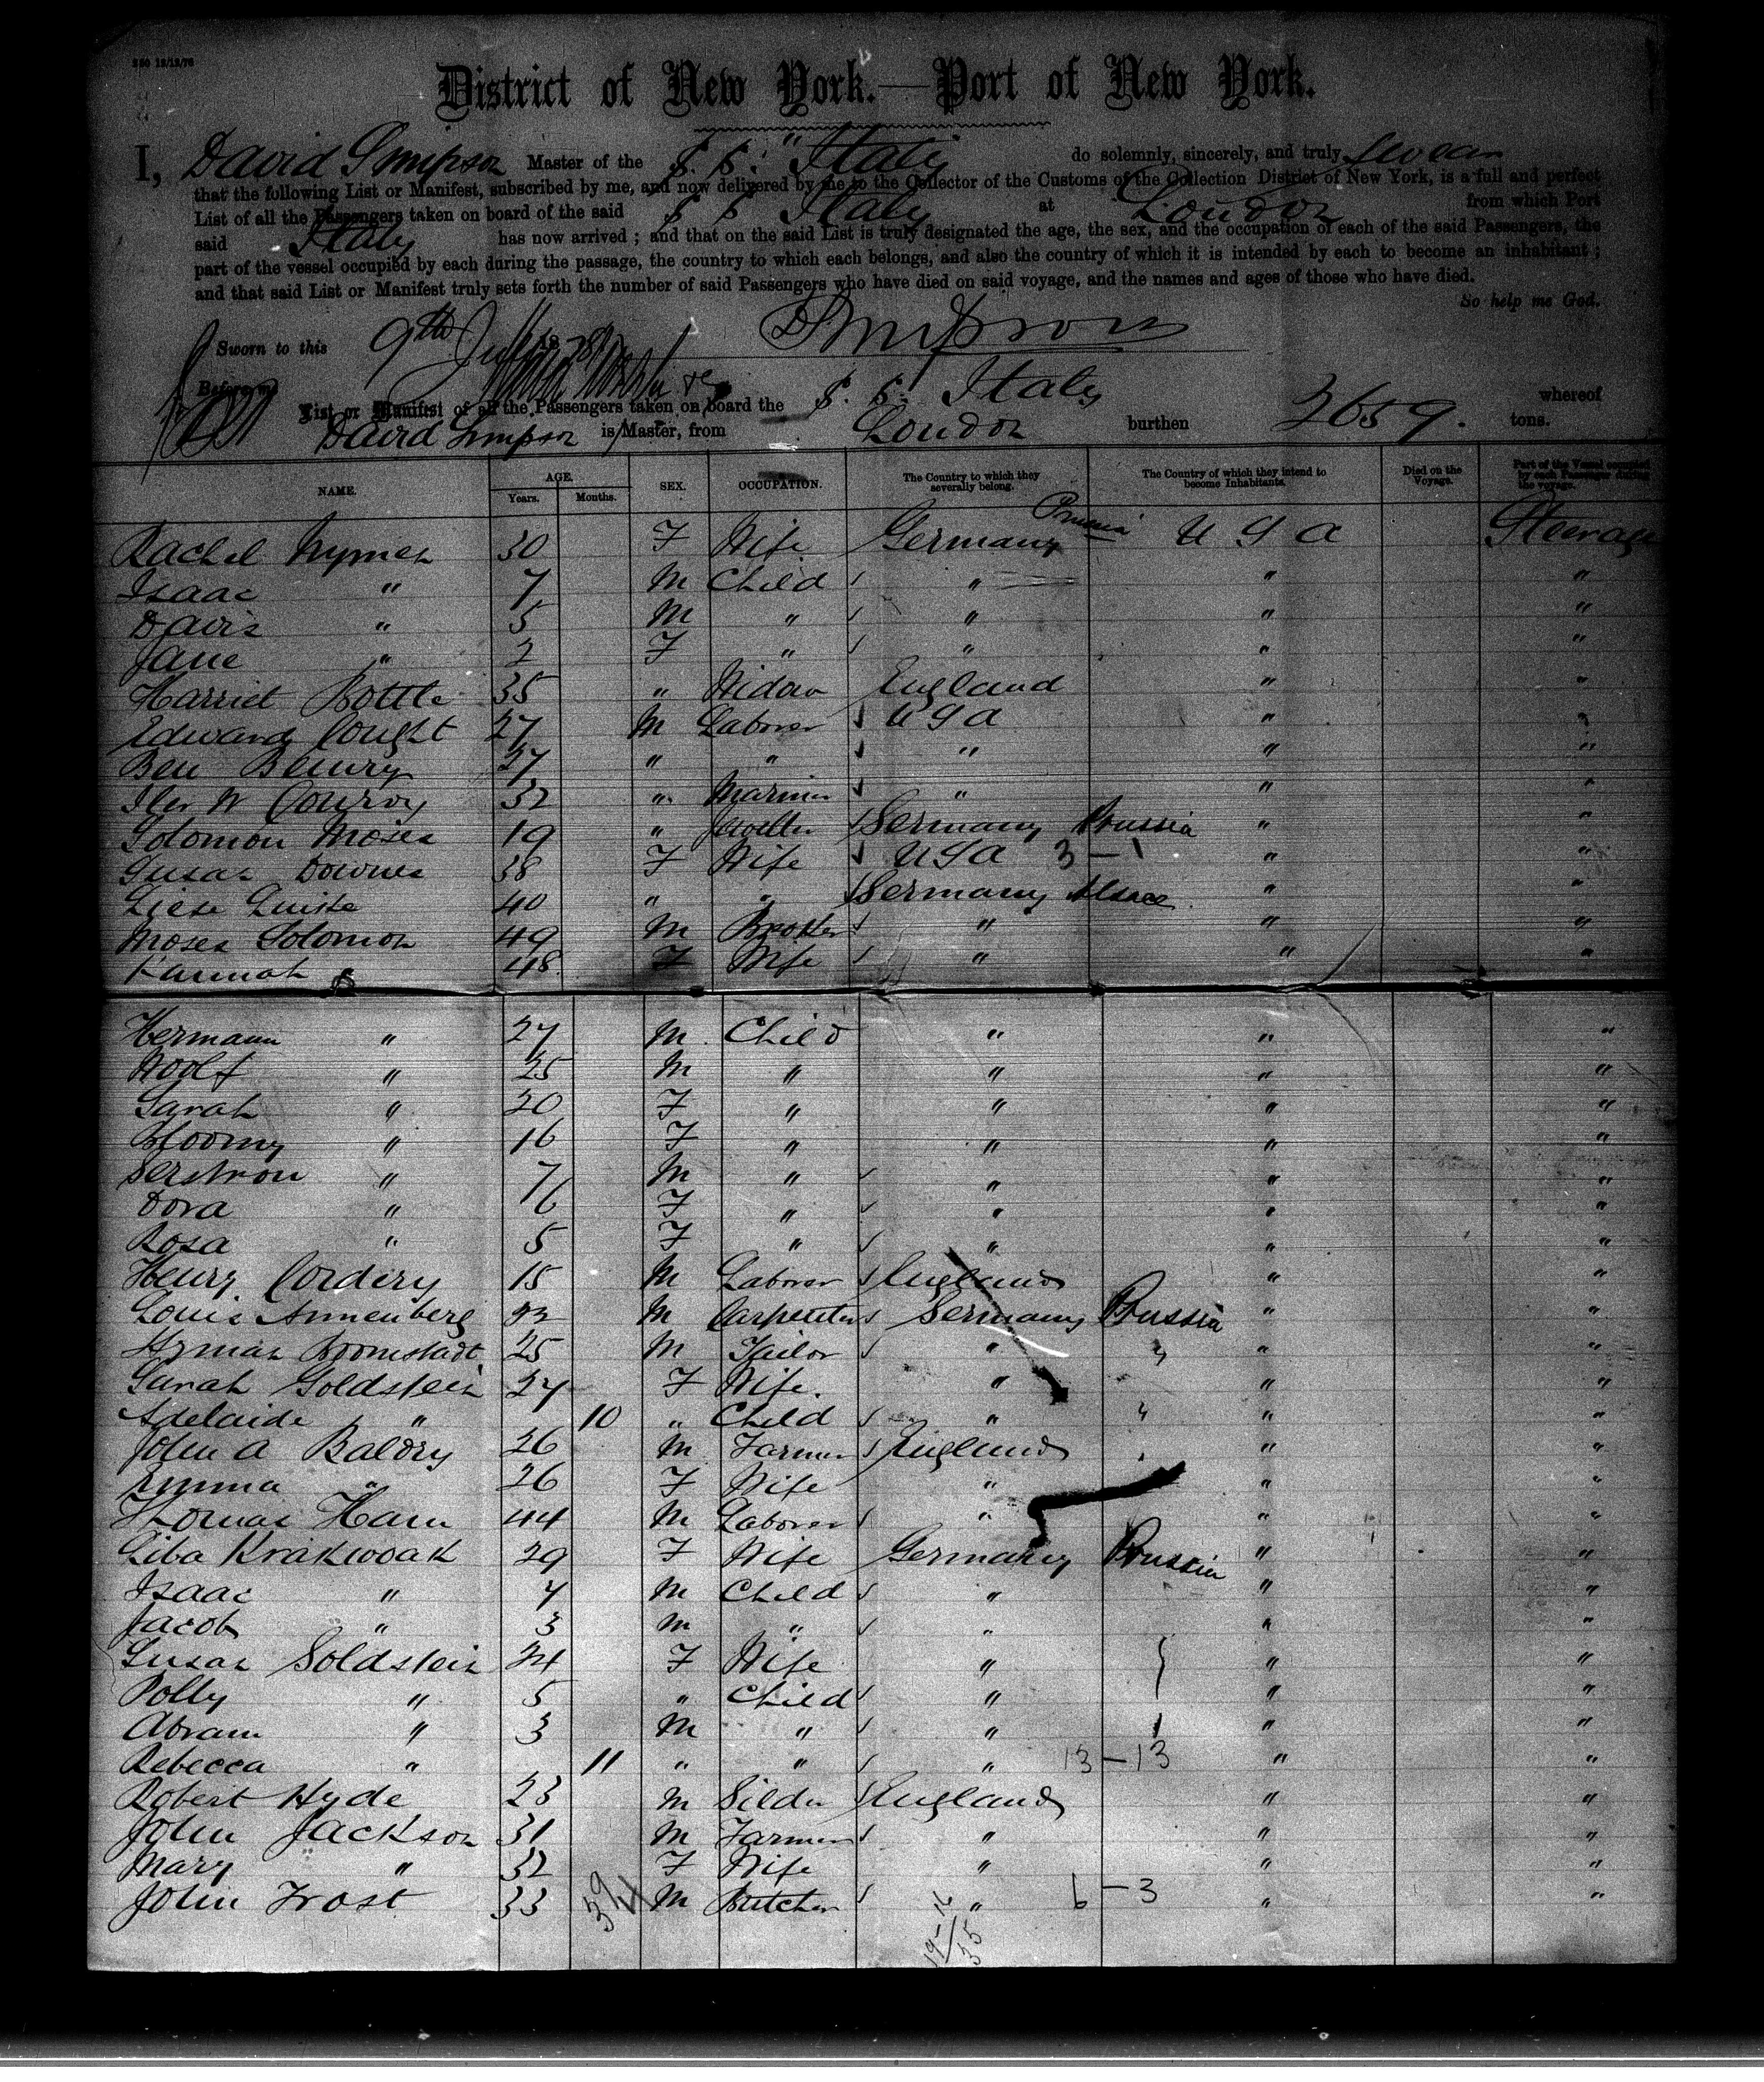 District of New York.—Port of New York.
I, David Simpson Master of the S. S. "Italy do solemnly, sincerely, and truly swear
that the following List or Manifest, subscribed by me, and now delivered by me to the Collector of the Customs of the Collection District of New York, is a full and perfect
List of all the Passengers taken on board of the said S S Italy at London from which Port
said Italy has now arrived ; and that on the said List is truly designated the age, the sex, and the occupation of each of the said Passengers, the
part of the vessel occupied by each during the passage, the country to which each belongs, and also the country of which it is intended by each to become an inhabitant ;
and that said List or Manifest truly sets forth the number of said Passengers who have died on said voyage, and the names and ages of those who have died.
So help me God.
Sworn to this 9th July 1878 DSimpson
Before me
List or Manifest of all the Passengers taken on board the S. S. Italy whereof
David Simpson is Master, from London burthen 2659. tons.
NAME. AGE. Years. Months. SEX. OCCUPATION. The Country to which they severally belong. The Country of which they intend to become Inhabitants. Died on the Voyage. Part of the Vessel occupied by each Passenger during the voyage.
Rachel Hyman 30 F Wife Germany Prussia U S A Steerage
Isaac " 7 M Child " " "
Davis " 5 M " " " "
Jane " 2 F " " " "
Harriet Bottle 35 " Widow England " "
Edward Cought 27 M Laborer U S A " "
Ben Blewry 27 " " " " "
W Conroy 32 " Mariner " " "
Solomon Moses 19 " Jeweller Germany Prussia " "
Susan Downes 38 F Wife U S A 3 – 1 " "
Liese Luiste 40 " " Germany Alsace " "
Moses Solomon 49 M Broker " " "
Hannah " 48 F Wife " " "
Hermann " 27 M Child " " "
Woolf " 25 M " " " "
Sarah " 20 F " " " "
Bloomy " 16 F " " " "
" 7 M " " " "
Dora " 6 F " " " "
Rosa " 5 F " " " "
Henry Cordery 15 M Laborer England " "
Louis Annenberg 22 M Carpenter Germany Prussia " "
Hyman Bromstadt 25 M Tailor " " " "
Sarah Goldstein 27 F Wife. " " "
Adelaide " 10 " Child " " " "
John A Baldry 26 M Farmer England " "
Emma " 26 F Wife " " "
Thomas Ham 44 M Laborer " " "
Liba Krakwoak 29 F Wife Germany Prussia " "
Isaac " 4 M Child " " "
Jacob " 3 M " " " "
Susan Goldstein 24 F Wife " " "
Polly " 5 " Child " " "
Abram " 3 M " " " "
Rebecca " 11 " " " 13 – 13 " "
Robert Hyde 23 M Gilder England " "
John Jackson 31 M Farmer " " "
Mary " 32 F Wife " " "
John Frost 33 M Butcher " 6 – 3 " "
39/4
19–16
35